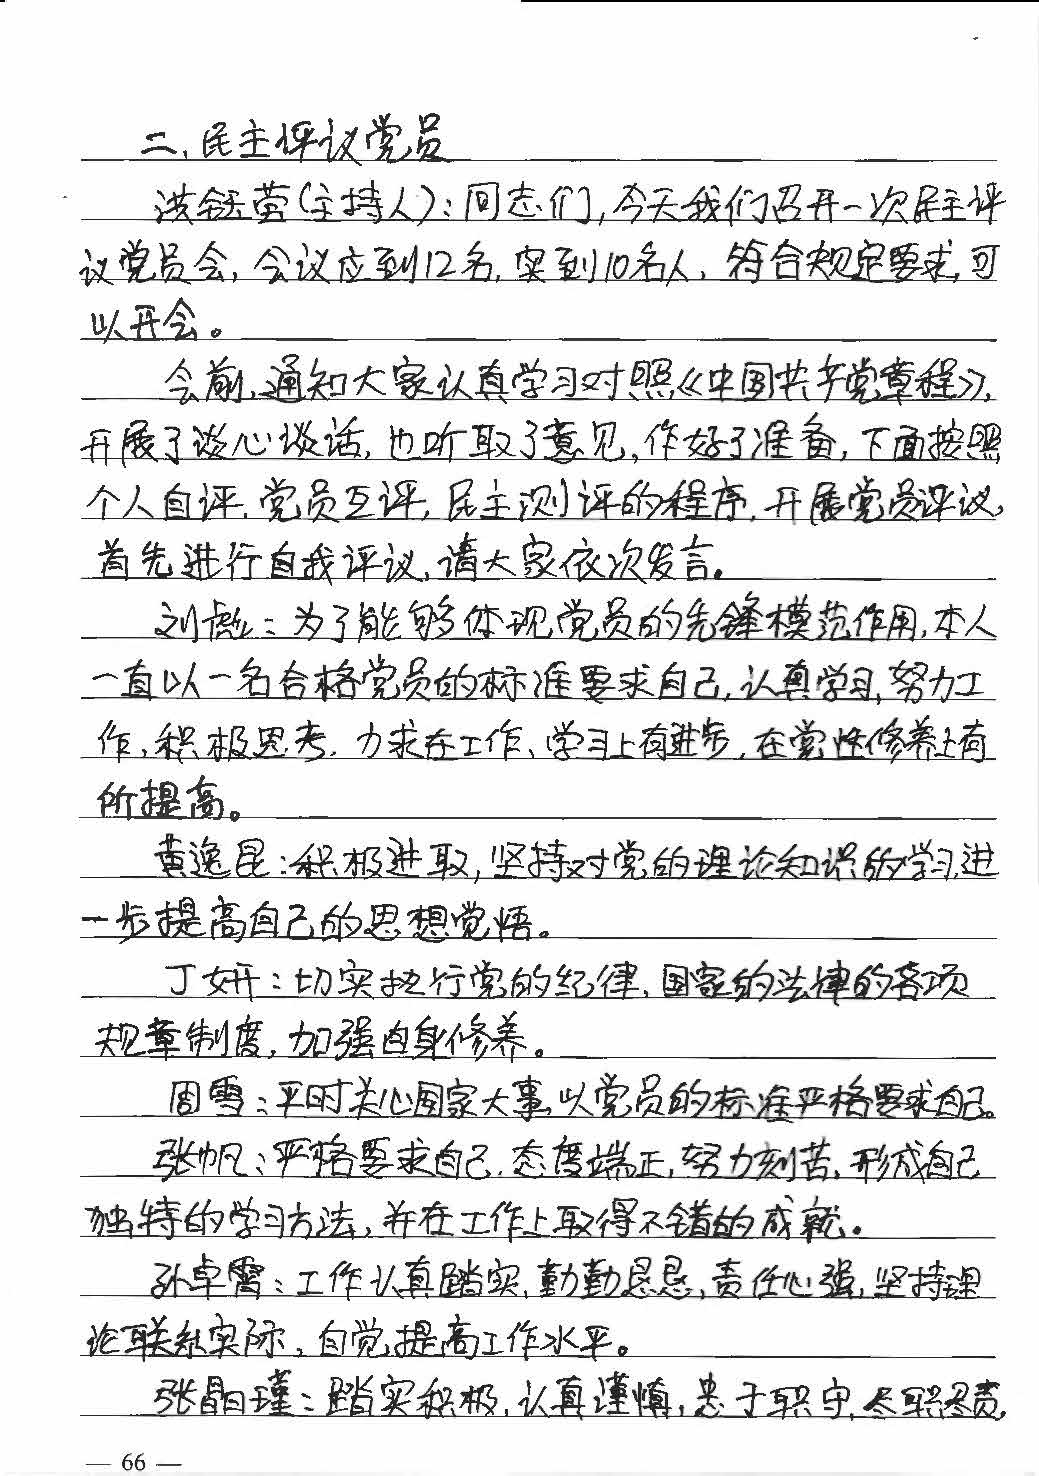 二、民主评议党员
洪钰莹(主持人):同志们,今天我们召开一次民主评
议党员会,会议应到12名,实到10名人,符合规定要求,可
以开会。
会前,通知大家认真学习对照《中国共产党章程》,
开展了谈心谈话,也听取了意见,作好了准备,下面按照
个人自评、党员互评,民主测评的程序,开展党员评议,
首先进行自我评议,请大家依次发言。
刘彪:为了能够体现党员的先锋模范作用,本人
一直以一名合格党员的标准要求自己,认真学习,努力工
作,积极思考,力求在工作、学习上有进步,在党性修养上有
所提高。
黄逸昆:积极进取,坚持对党的理论知识的学习,进
一步提高自己的思想觉悟。
丁妍:切实执行党的纪律、国家的法律的各项
规章制度,加强自身修养。
周雪:平时关心国家大事,以党员的标准严格要求自己。
张帆:严格要求自己,态度端正,努力刻苦,形成自己
独特的学习方法,并在工作上取得不错的成就。
孙卓霄:工作认真踏实,勤勤恳恳,责任心强,坚持理
论联系实际,自觉提高工作水平。
张晶瑾:踏实积极,认真谨慎,忠于职守,尽职尽责,
— 66 —